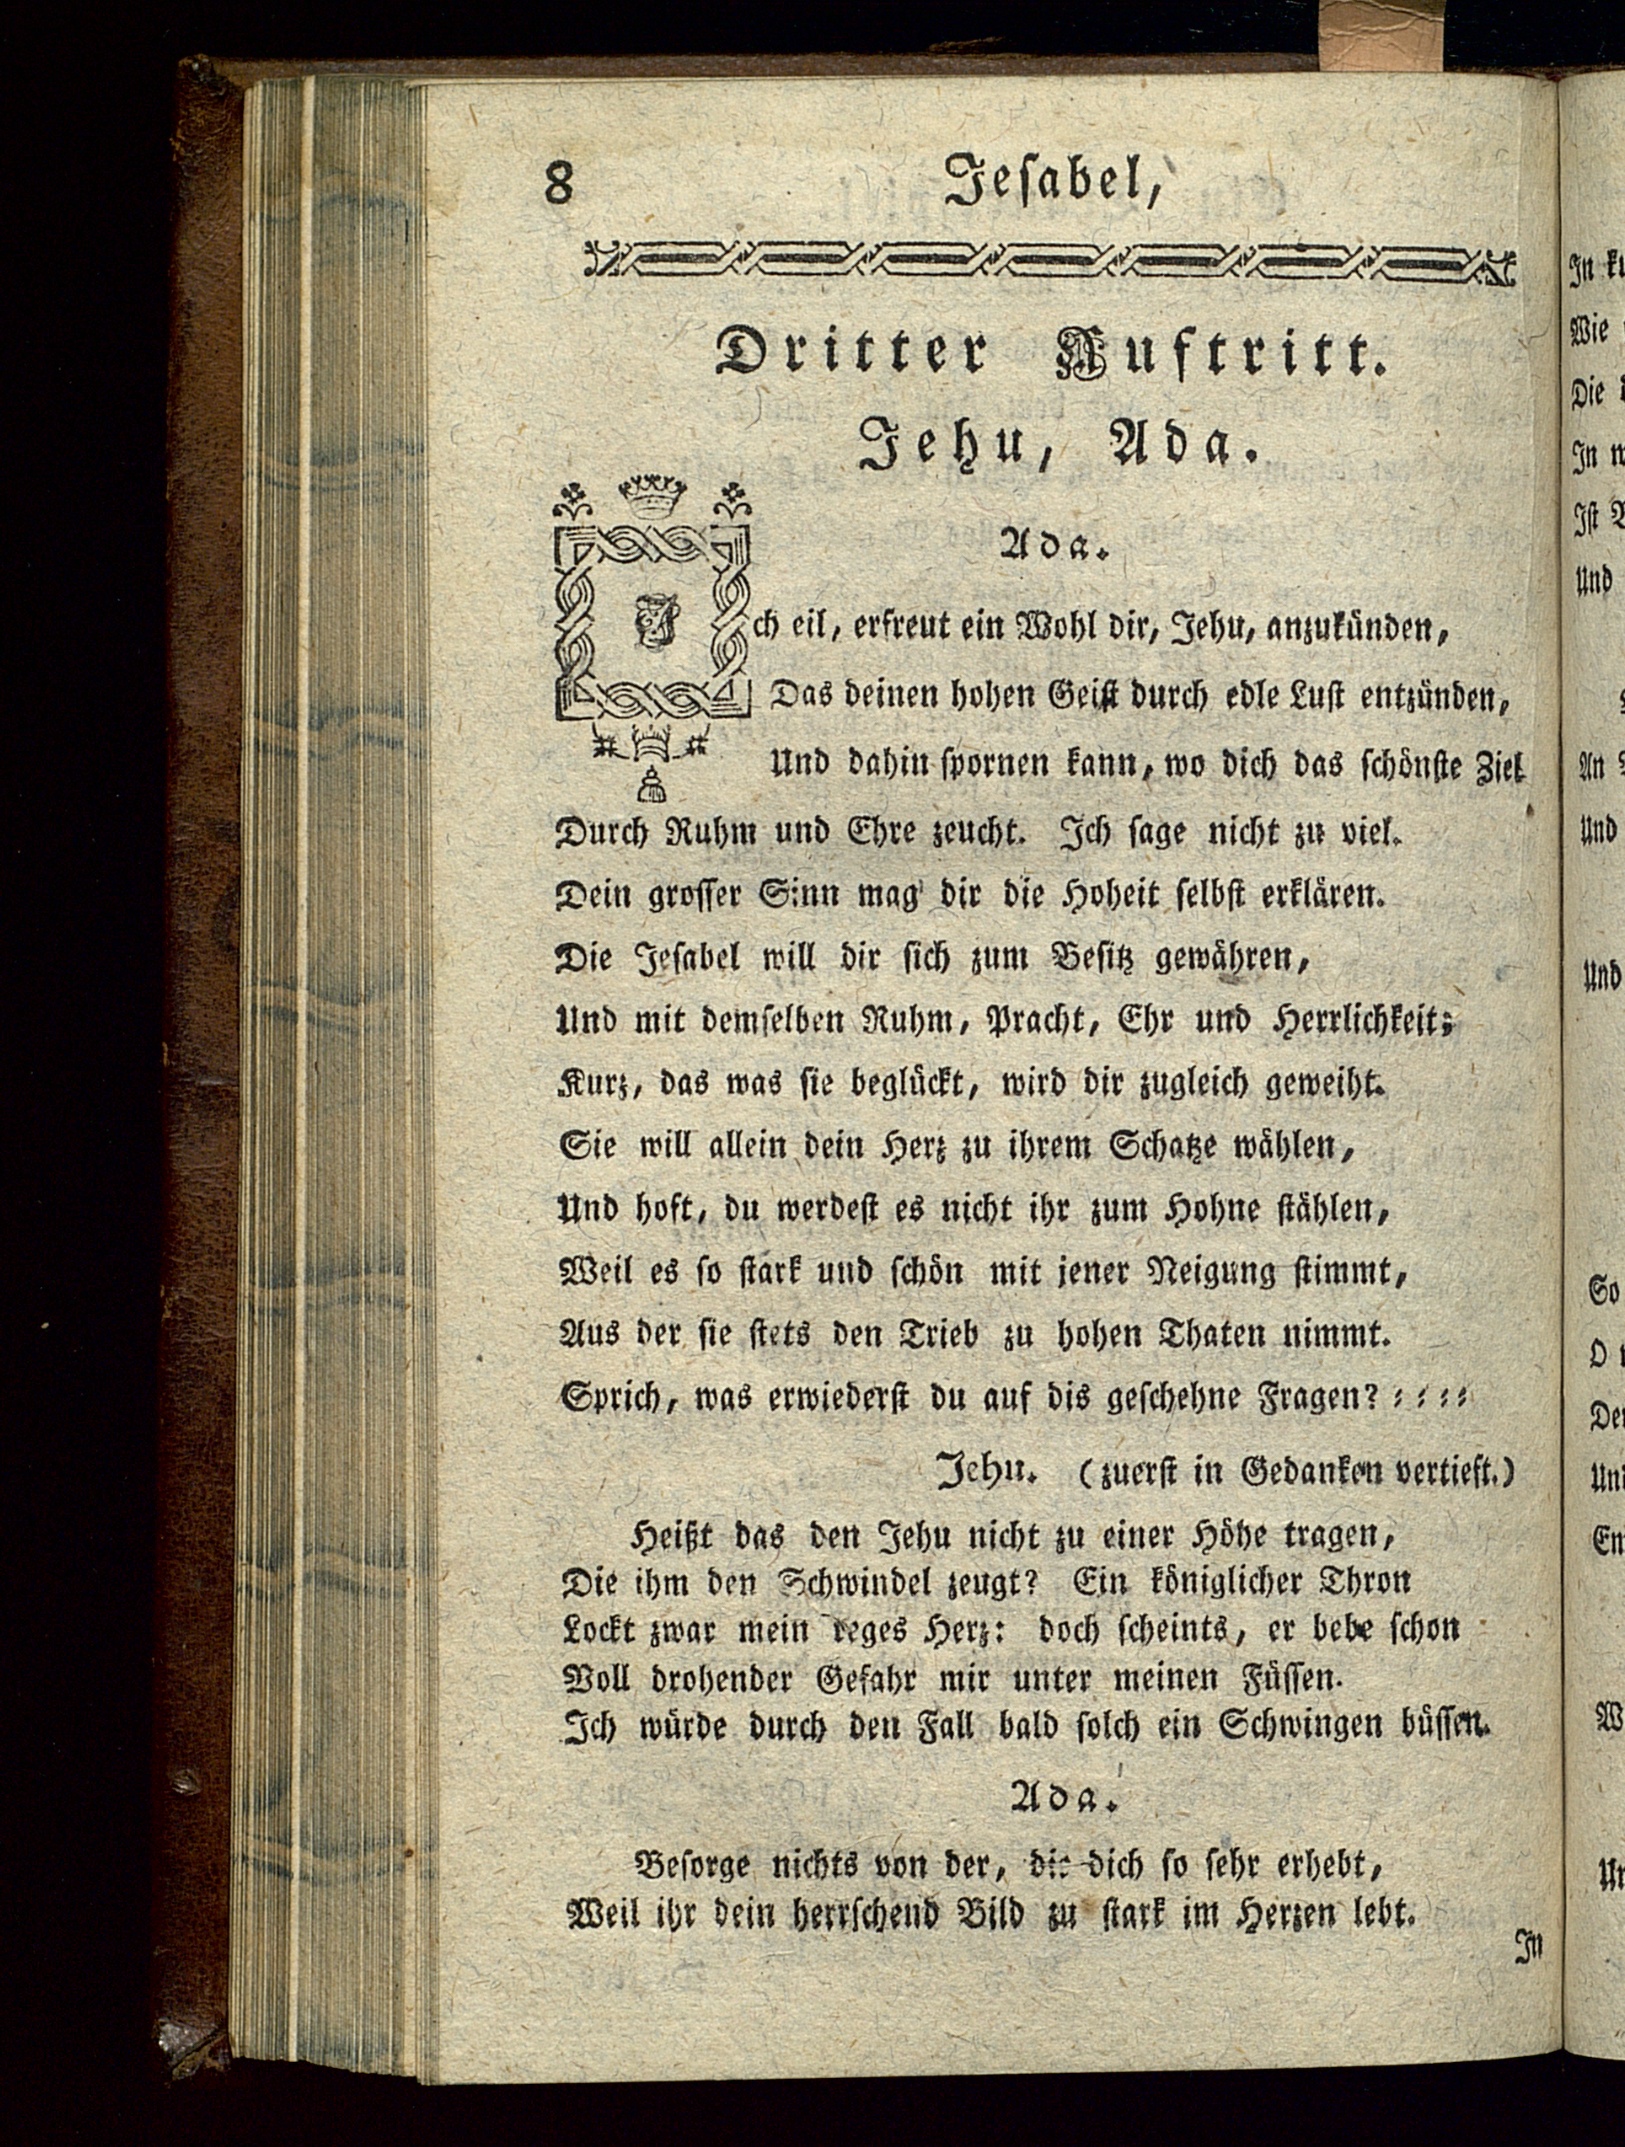 8 Jeſabel,
Dritter Auftritt.
Jehu, Ada.
Ada.
Ich eil, erfreut ein Wohl dir, Jehu, anzukünden,
Das deinen hohen Geiſt durch edle Luſt entzünden,
Und dahin ſpornen kann, wo dich das ſchönſte Ziel
Durch Ruhm und Ehre zeucht. Ich ſage nicht zu viel.
Dein groſſer Sinn mag dir die Hoheit ſelbſt erklären.
Die Jeſabel will dir ſich zum Beſitz gewähren,
Und mit demſelben Ruhm, Pracht, Ehr und Herrlichkeit;
Kurz, das was ſie beglückt, wird dir zugleich geweiht.
Sie will allein dein Herz zu ihrem Schatze wählen,
Und hoft, du werdeſt es nicht ihr zum Hohne ſtählen,
Weil es ſo ſtark und ſchön mit jener Neigung ſtimmt,
Aus der ſie ſtets den Trieb zu hohen Thaten nimmt.
Sprich, was erwiederſt du auf dis geſchehne Fragen? ⸗ ⸗ ⸗ ⸗
Jehu. (zuerſt in Gedanken vertieft.)
Heißt das den Jehu nicht zu einer Höhe tragen,
Die ihm den Schwindel zeugt? Ein königlicher Thron
Lockt zwar mein reges Herz: doch ſcheints, er bebe ſchon
Voll drohender Gefahr mir unter meinen Füſſen.
Ich würde durch den Fall bald ſolch ein Schwingen büſſen.
Ada.
Beſorge nichts von der, die dich ſo ſehr erhebt,
Weil ihr dein herrſchend Bild zu ſtark im Herzen lebt.
In
In
Wie
Die
In
Iſt
Und
An
Und
Und
So
O